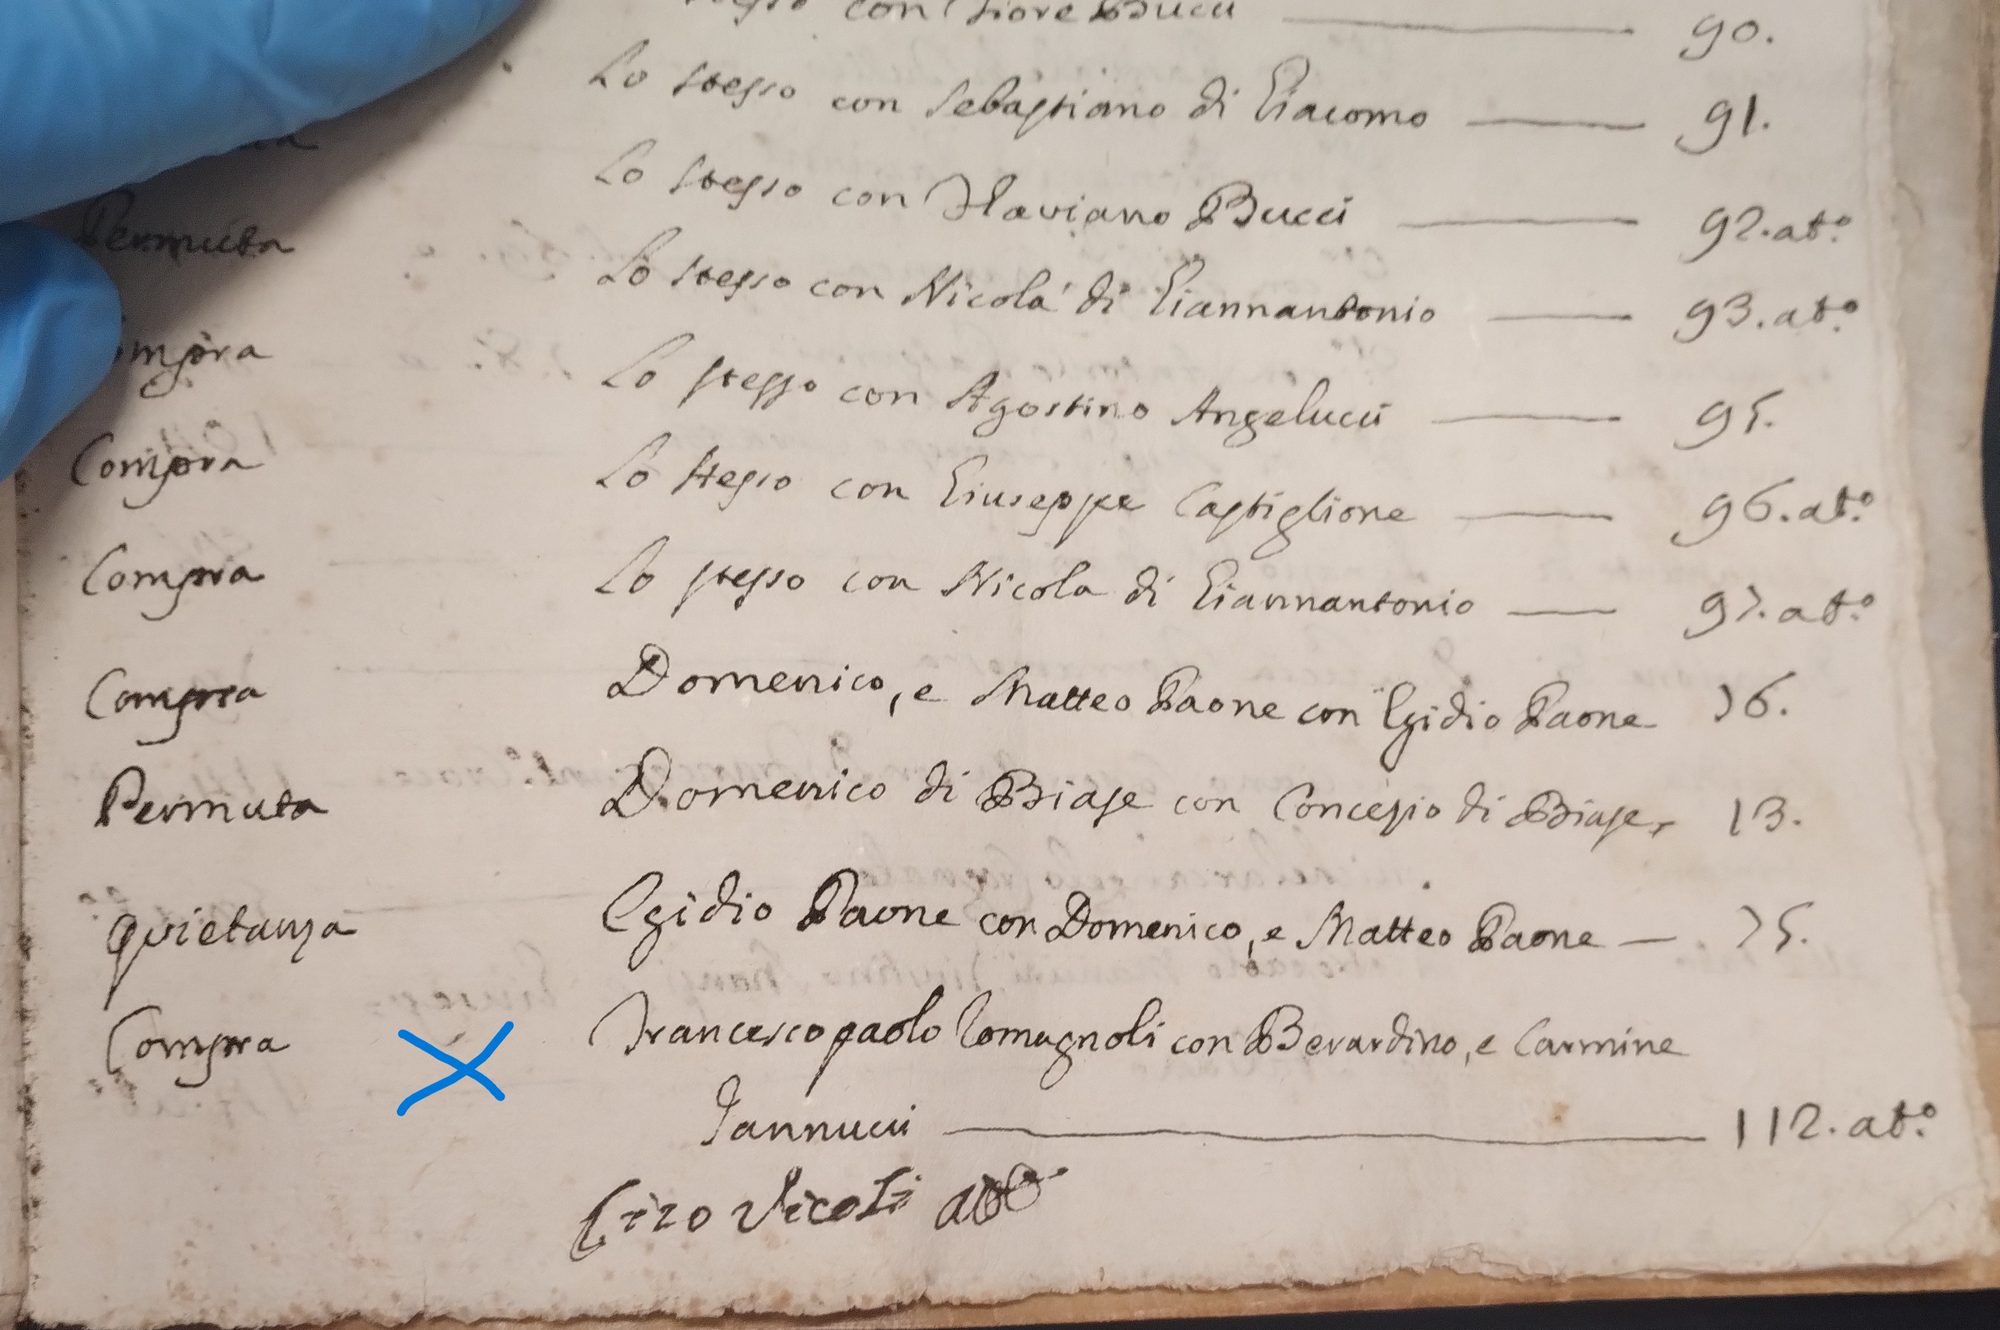 con Fiore Bucci 90.
Lo stesso con Sebastiano di Giacomo 91.
Lo stesso con Flaviano Bucci 92. at.º
Permuta Lo stesso con Nicola di Giannantonio 93. at.º
Compra Lo stesso con Agostino Angelucci 95.
Compra Lo stesso con Giuseppe Castiglione 96. at.º
Compra Lo stesso con Nicola di Giannantonio 97. at.º
Compra Domenico, e Matteo Paone con Egidio Paone 76.
Permuta Domenico di Biase con Concezio di Biase 13.
Quietanza Egidio Paone con Domenico, e Matteo Paone 75.
Compra Francescopaolo Romagnoli con Berardino, e Carmine
Iannucci 112. at.º
Ciro Vicoli